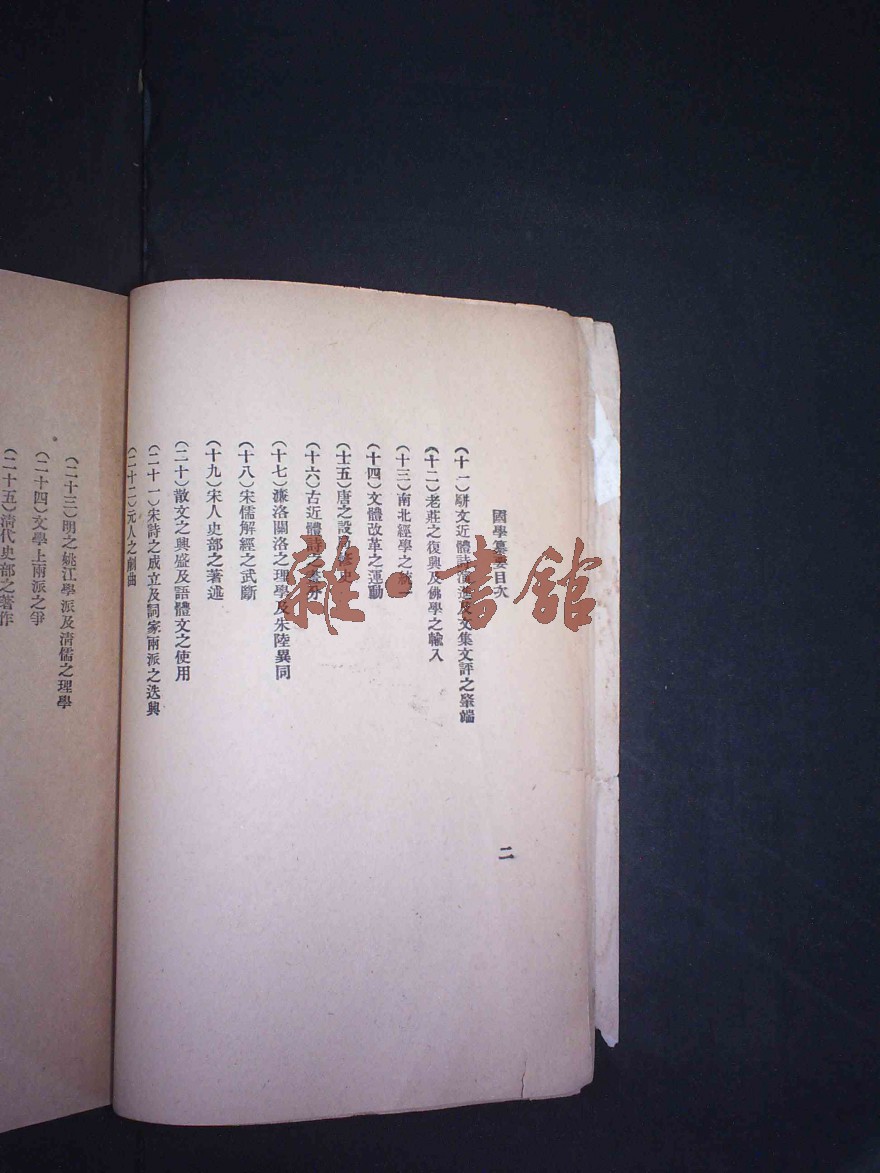 國學纂要目次
二
(十一)駢文近體詩演進及文集文評之肇端
(十二)老莊之復興及佛學之輸入
(十三)南北經學之統一
(十四)文體改革之運動
(十五)唐之設局修史
(十六)古近體詩之
(十七)濂洛關洛之理學及朱陸異同
(十八)宋儒解經之武斷
(十九)宋人史部之著述
(二十)散文之興盛及語體文之使用
(二十一)宋詩之成立及詞家兩派之迭興
(二十二)元人之劇曲
(二十三)明之姚江學派及清儒之理學
(二十四)文學上兩派之爭
(二十五)清代史部之著作
雜·書館